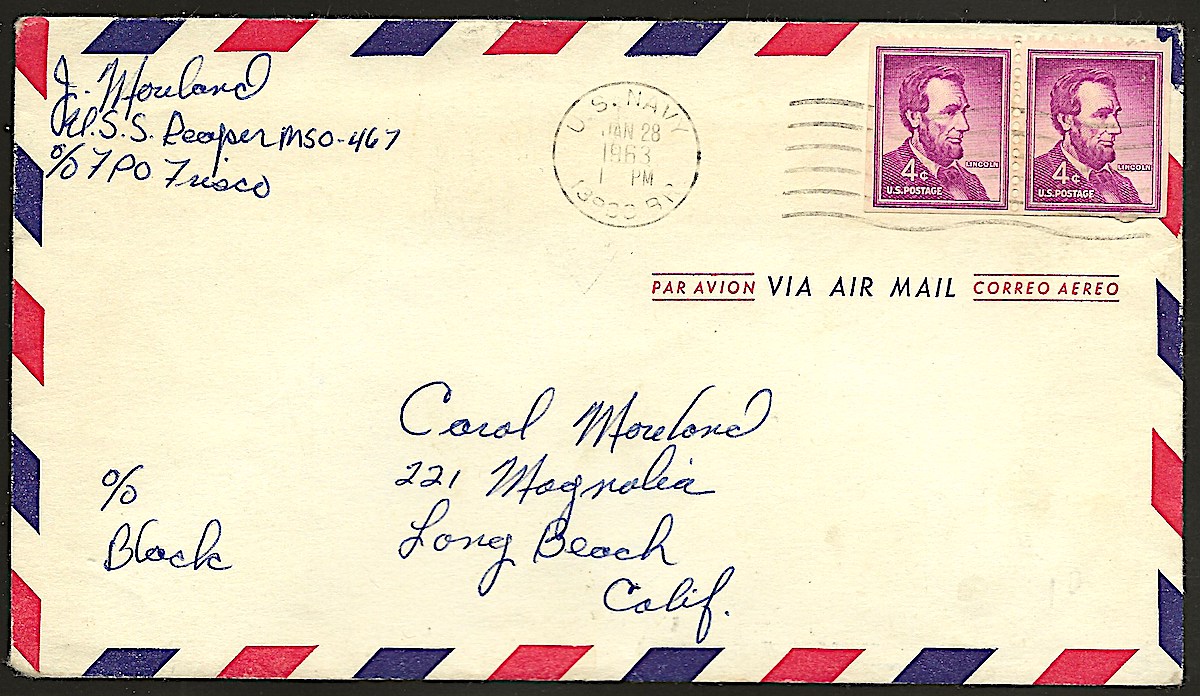 J. Moreland
U.S.S. Reaper MSO-467
c/o FPO Frisco
U.S. NAVY
JAN 28
1963
1 PM
LINCOLN
4¢
U.S. POSTAGE
LINCOLN
4¢
U.S. POSTAGE
PAR AVION VIA AIR MAIL CORREO AEREO
Carol Moreland
221 Magnolia
Long Beach
Calif.
c/o
Black